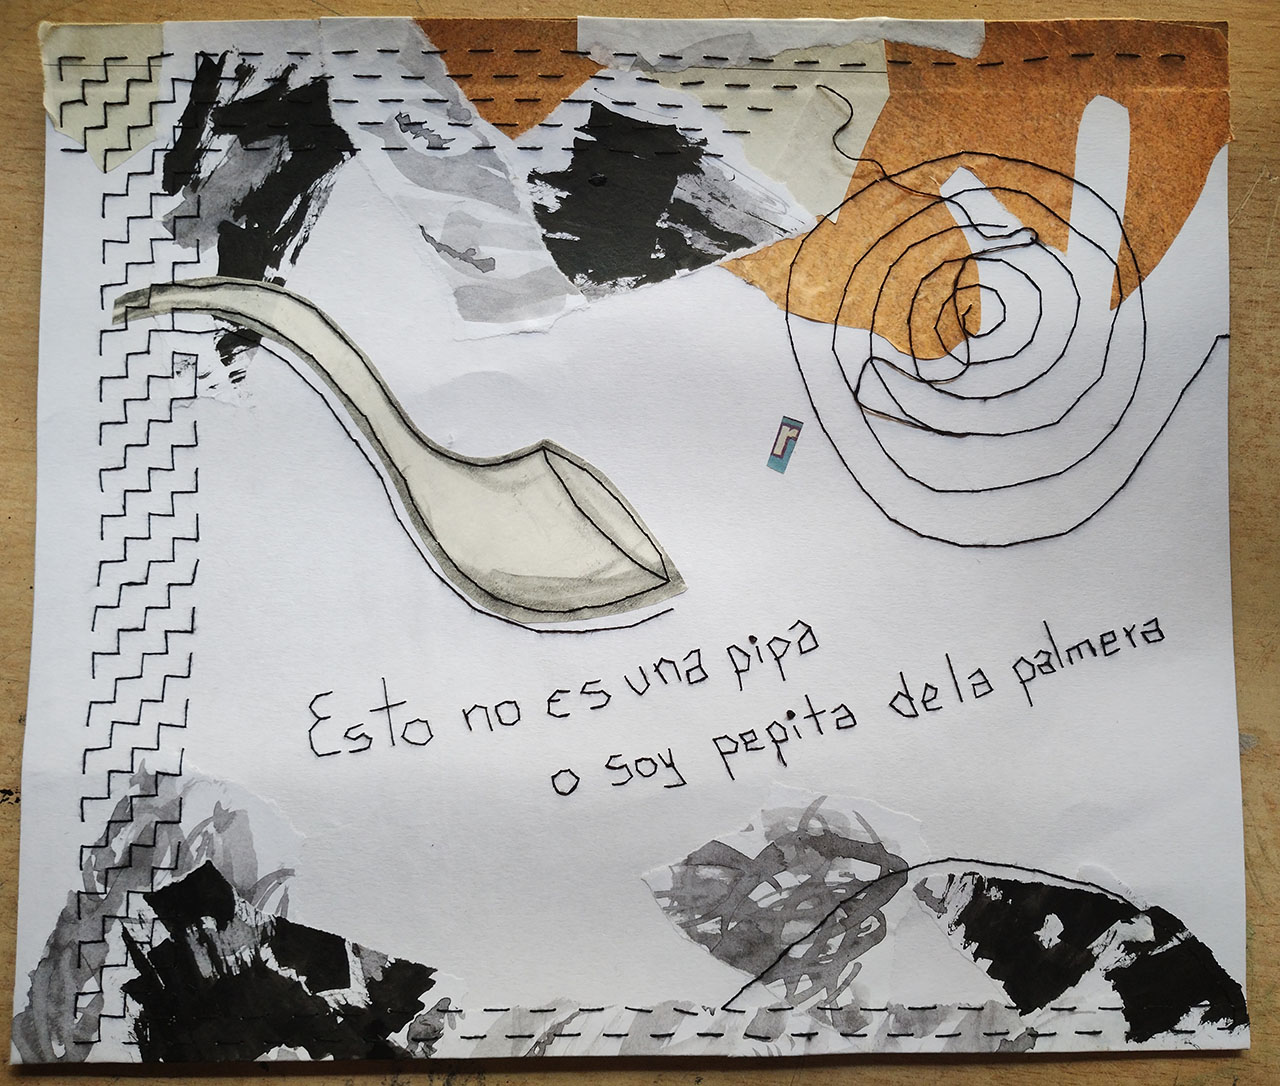 r
Esto no es una pipa
o soy pepita de la palmera